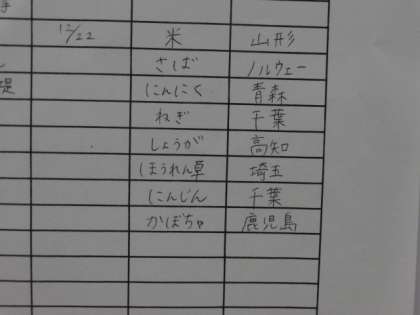 12/22 米 山形
さば ノルウェー
にんにく 青森
ねぎ 千葉
しょうが 高知
ほうれん草 埼玉
にんじん 千葉
かぼちゃ 鹿児島